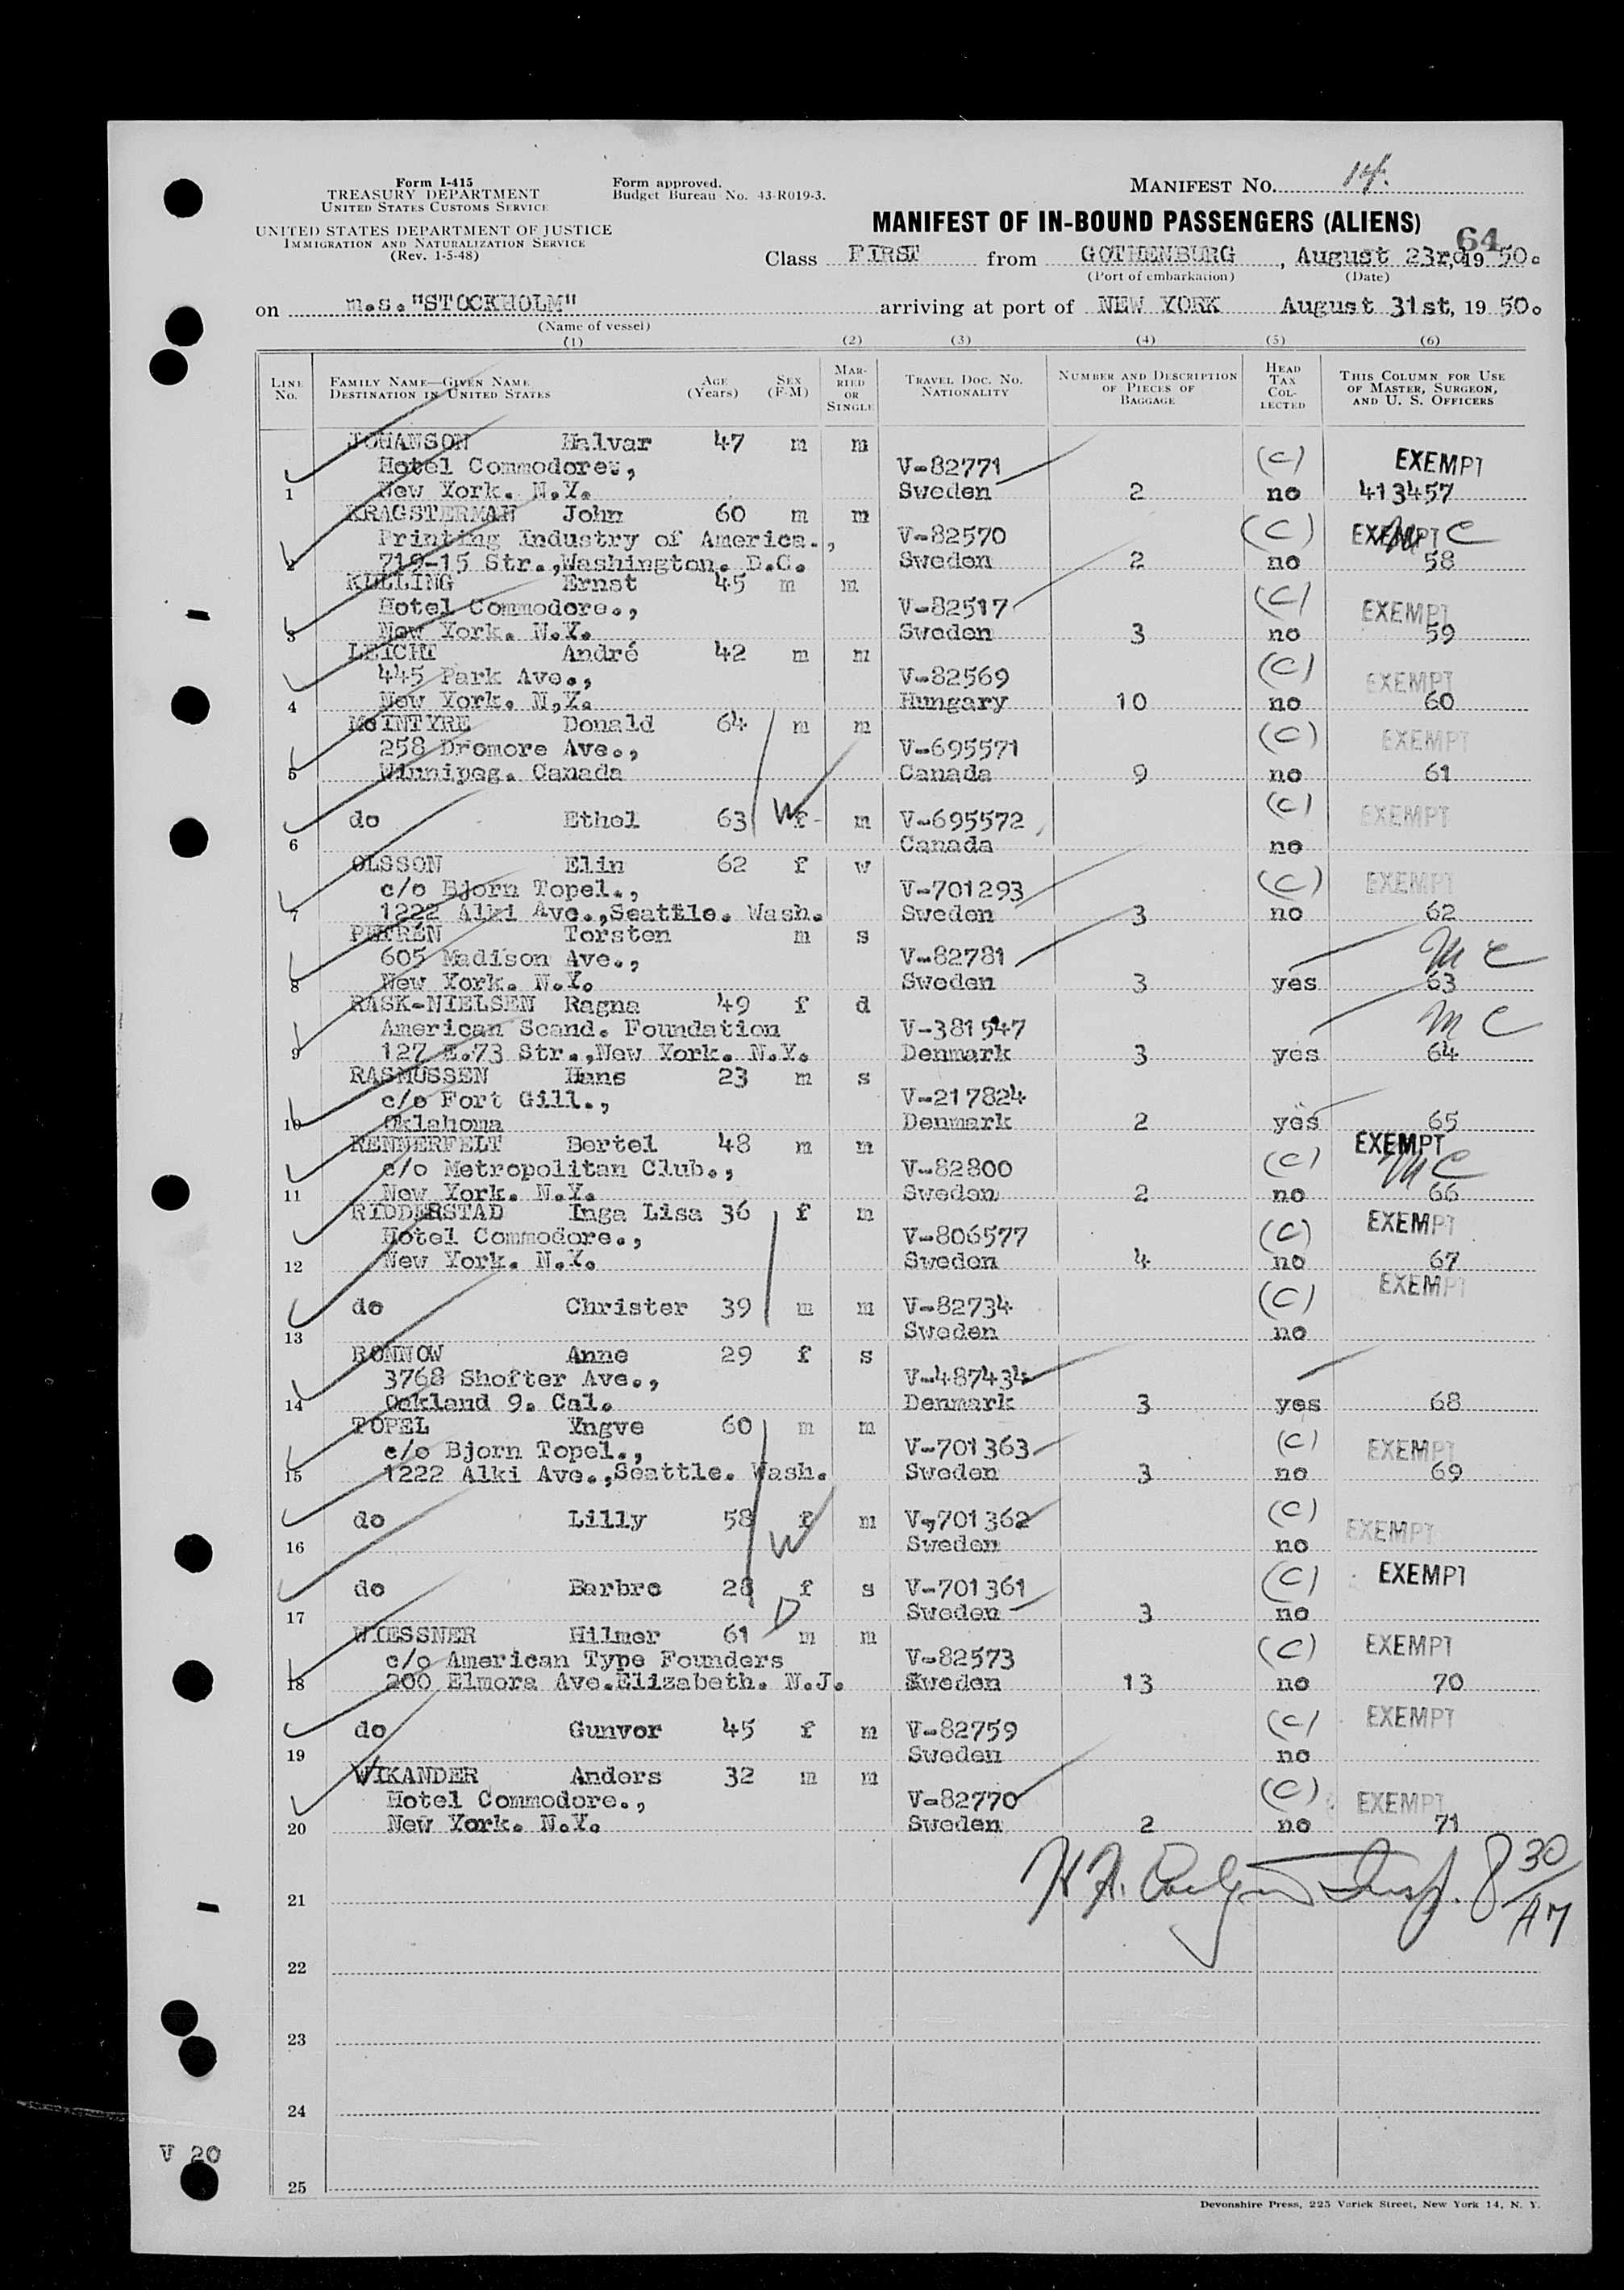 Form I-415
TREASURY DEPARTMENT
UNITED STATES CUSTOMS SERVICE
UNITED STATES DEPARTMENT OF JUSTICE
IMMIGRATION AND NATURALIZATION SERVICE
(Rev. 1-5-48)
Form approved.
Budget Bureau No. 43-R019-3.
MANIFEST NO. 14.
MANIFEST OF IN-BOUND PASSENGERS (ALIENS)
64
Class FIRST from GOTHENBURG, August 23rd, 19 50.
(Port of embarkation) (Date)
on m.s."STOCKHOLM" arriving at port of NEW YORK August 31st, 19 50.
(Name of vessel)
(1) (2) (3) (4) (5) (6)
LINE NO. FAMILY NAME—GIVEN NAME DESTINATION IN UNITED STATES AGE (Years) SEX (F-M) MARRIED OR SINGLE TRAVEL DOC. NO. NATIONALITY NUMBER AND DESCRIPTION OF PIECES OF BAGGAGE HEAD TAX COLLECTED THIS COLUMN FOR USE OF MASTER, SURGEON, AND U. S. OFFICERS
JOHANSON Halvar 47 m m (C) EXEMPT
Hotel Commodore., V-82771
1 New York. N.Y. Sweden 2 no 413457
KRAGSTERMAN John 60 m m
Printing Industry of America., V-82570 (C) EXEMPT MC
2 719-15 Str.,Washington. D.C. Sweden 2 no 58
KULLING Ernst 45 m m
Hotel Commodore., V-82517 (C) EXEMPT
3 New York. N.Y. Sweden 3 no 59
LEICHT André 42 m m
445 Park Ave., V-82569 (C) EXEMPT
4 New York. N,Y. Hungary 10 no 60
McINTYRE Donald 64 m m
258 Dromore Ave., V-695571 (C) EXEMPT
5 Winnipeg. Canada Canada 9 no 61
do Ethel 63 W f m V-695572 (C) EXEMPT
6 Canada no
OLSSON Elin 62 f w
c/o Bjorn Topel., V-701293 (C) EXEMPT
7 1222 Alki Ave.,Seattle. Wash. Sweden 3 no 62
PEHRÉN Torsten m s
605 Madison Ave., V-82781 MC
8 New York. N.Y. Sweden 3 yes 63
RASK-NIELSEN Ragna 49 f d
American Scand. Foundation V-381547 MC
9 127 E.73 Str.,New York. N.Y. Denmark 3 yes 64
RASMUSSEN Hans 23 m s
c/o Fort Gill., V-217824
10 Oklahoma Denmark 2 yes 65
RENNERFELT Bertel 48 m m EXEMPT
c/o Metropolitan Club., V-82800 (C) MC
11 New York. N.Y. Sweden 2 no 66
RIDDERSTAD Inga Lisa 36 f m EXEMPT
Hotel Commodore., V-806577 (C)
12 New York. N.Y. Sweden 4 no 67
do Christer 39 m m V-82734 (C) EXEMPT
13 Sweden no
RONNOW Anne 29 f s
3768 Shofter Ave., V-487434
14 Oakland 9. Cal. Denmark 3 yes 68
TOPEL Yngve 60 m m
c/o Bjorn Topel., V-701363 (C) EXEMPT
15 1222 Alki Ave.,Seattle. Wash. Sweden 3 no 69
do Lilly 58 f m V-701362 (C) EXEMPT
16 W Sweden no
do Barbro 28 f s V-701361 (C) EXEMPT
17 D Sweden 3 no
WIESSNER Hilmer 61 m m
c/o American Type Founders V-82573 (C) EXEMPT
18 200 Elmora Ave.Elizabeth. N.J. Sweden 13 no 70
do Gunvor 45 f m V-82759 (C) EXEMPT
19 Sweden no
WIKANDER Anders 32 m m
Hotel Commodore., V-82770 (C) EXEMPT
20 New York. N.Y. Sweden 2 no 71
Insp. 8 30/AM
21
22
23
24
V 20
25
Devonshire Press, 225 Varick Street, New York 14, N. Y.